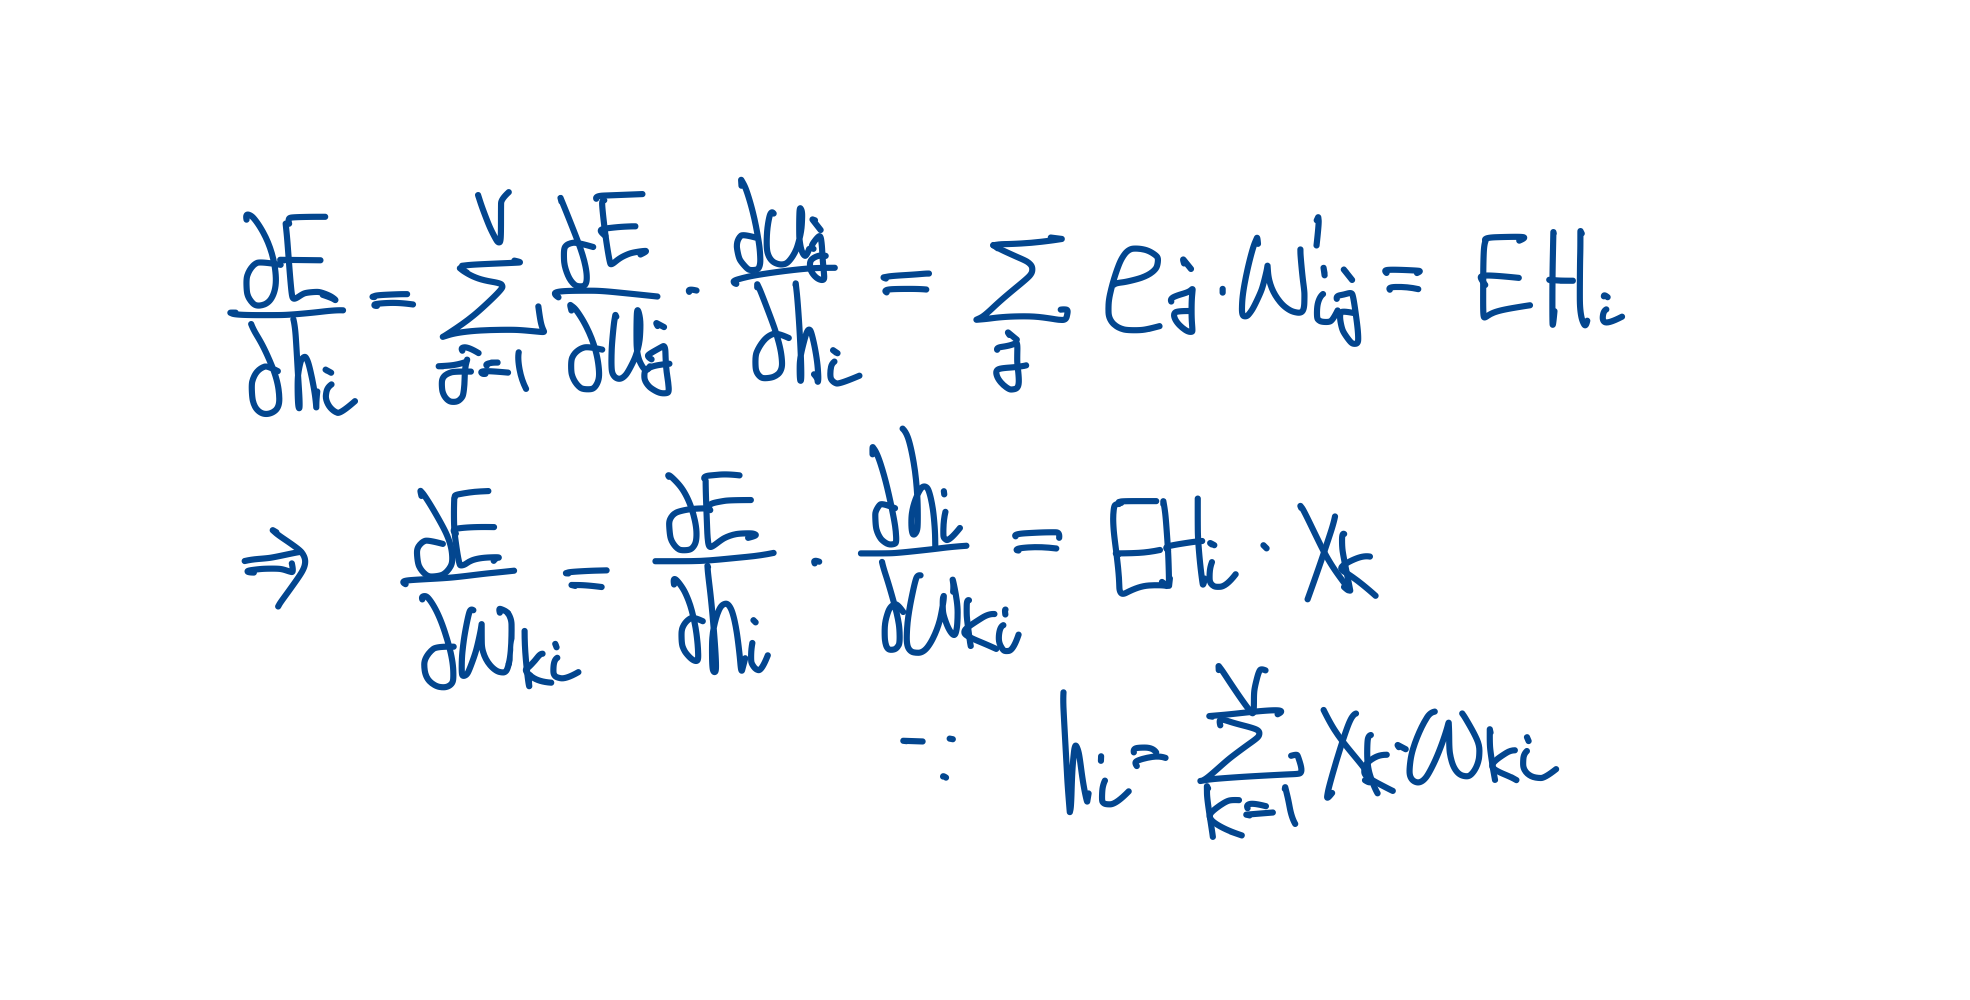 ∂E/∂hᵢ = Σⱼ₌₁ⱽ ∂E/∂uⱼ · ∂uⱼ/∂hᵢ = Σⱼ eⱼ · w'ᵢⱼ = EHᵢ
⇒ ∂E/∂wₖᵢ = ∂E/∂hᵢ · ∂hᵢ/∂wₖᵢ = EHᵢ · xₖ
∵ hᵢ = Σₖ₌₁ⱽ xₖ · wₖᵢ